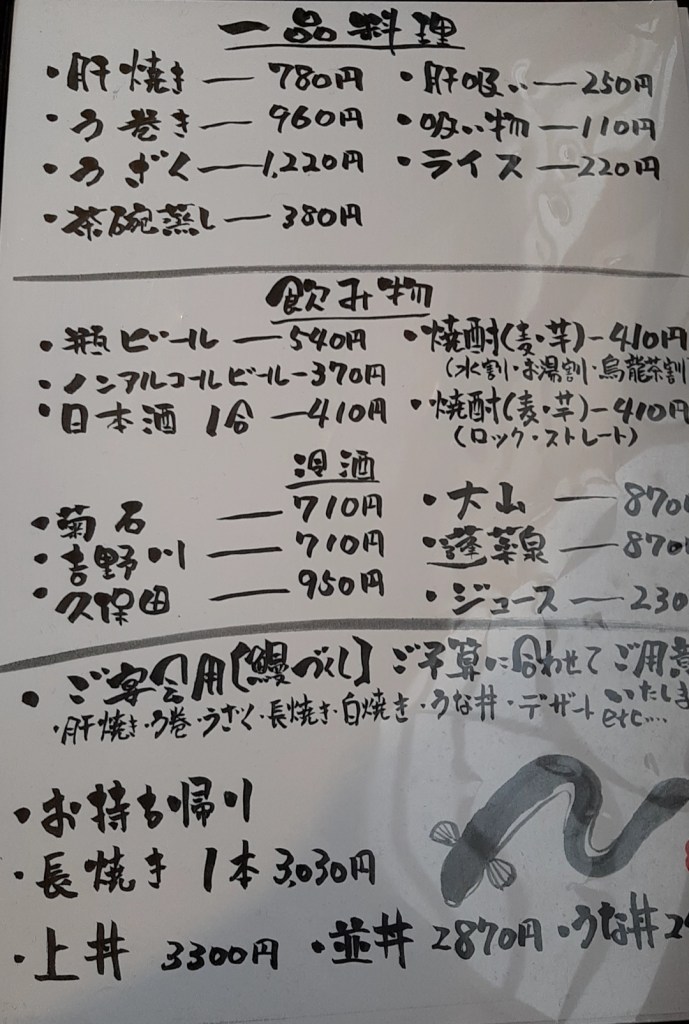 一品料理
・肝焼き — 780円
・う巻き — 960円
・うざく — 1,220円
・茶碗蒸し — 380円
・肝吸い — 250円
・吸い物 — 110円
・ライス — 220円
飲み物
・瓶ビール — 540円
・ノンアルコールビール — 370円
・日本酒 1合 — 410円
・焼酎(麦・芋) — 410円
(水割・お湯割・烏龍茶割
・焼酎(麦・芋) — 410円
(ロック・ストレート)
冷酒
・菊石 — 710円
・吉野川 — 710円
・久保田 — 950円
・大山 — 870
・蓬莱泉 — 870
・ジュース — 230
・ご宴会用[鰻づくし] ご予算に合わせて ご用意
いたしま
・肝焼き・う巻・うざく・長焼き・白焼き・うな丼・デザート etc....
・お持ち帰り
・長焼き 1本 3,030円
・上丼 3300円 ・並丼 2870円 ・うな丼 2